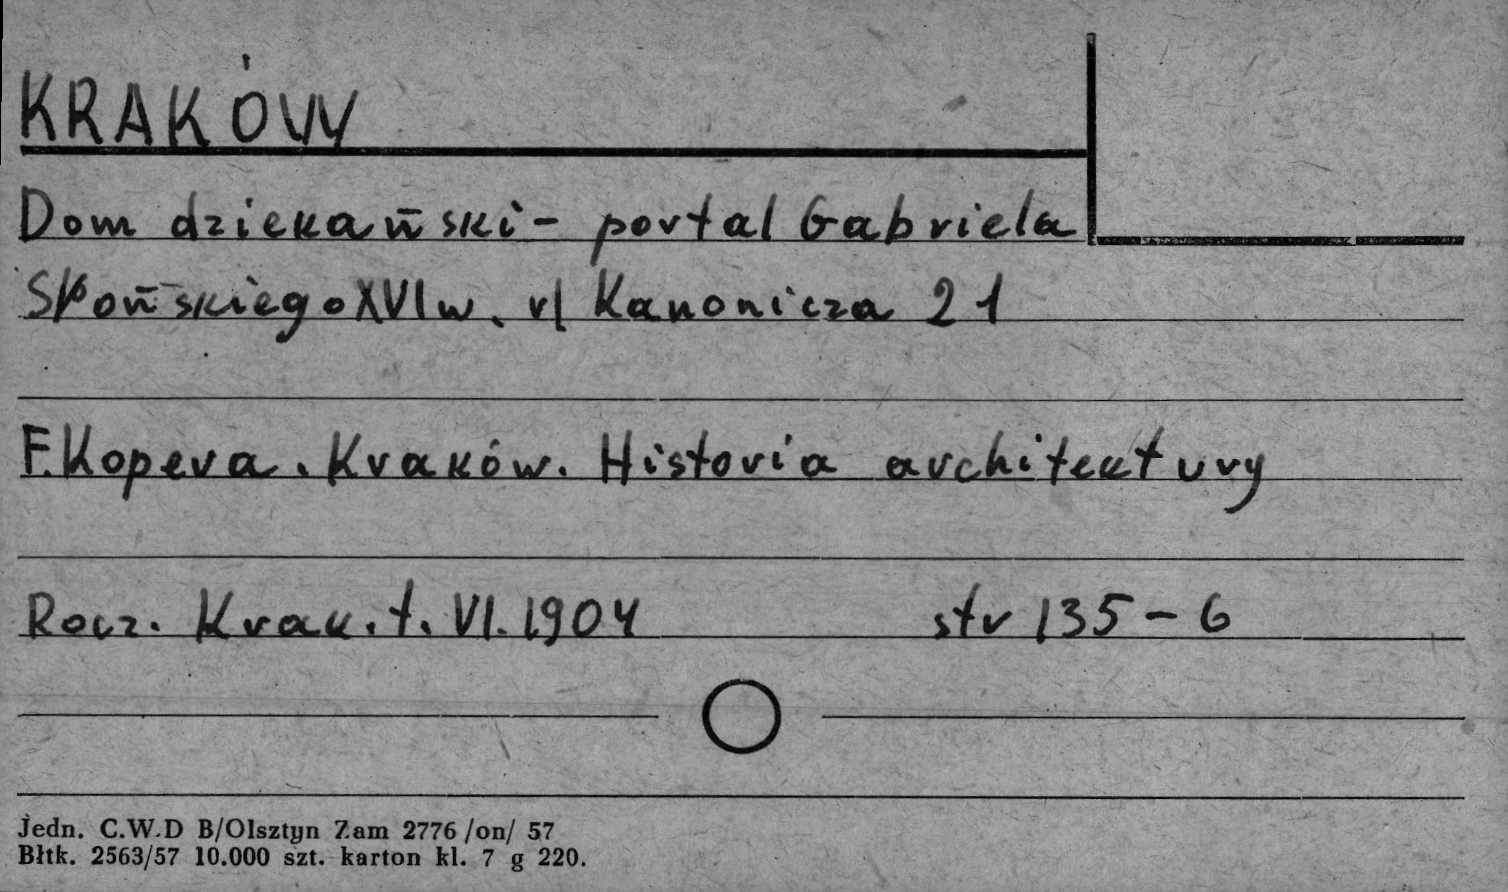 KRAKÓW
Dom dziekański - portal Gabriela
Słońskiego XVI w. ul Kanonicza 21
F. Kopera. Kraków. Historia architektury
Rocz. Krak. t. VI. 1904 str 135-6
Jedn. C.W.D B/Olsztyn Zam 2776 /on/ 57
Błtk. 2563/57 10.000 szt. karton kl. 7 g 220.